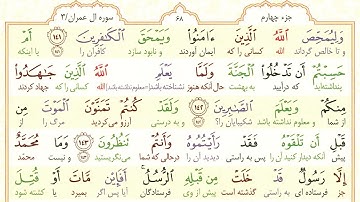 جزء چهارم ۶۸ سوره ال عمران/۳
وَلِيُمَحِّصَ اللَّهُ الَّذِينَ ءَامَنُوا وَيَمْحَقَ الْكَافِرِينَ ﴿۱۴۱﴾ أَمْ
و تا خالص گرداند الله کسانی را که ایمان آوردند و نابود سازد کافران را یا اینکه
حَسِبْتُمْ أَن تَدْخُلُوا الْجَنَّةَ وَلَمَّا يَعْلَمِ اللَّهُ الَّذِينَ جَاهَدُوا
پنداشته‌اید که درآیید به بهشت الله کسانی را که جهاد کردند
مِنكُمْ وَيَعْلَمَ الصَّابِرِينَ ﴿۱۴۲﴾ وَلَقَدْ كُنتُمْ تَمَنَّوْنَ الْمَوْتَ مِن
از شما شکیبایان را و به درستی آرزو می‌کردید مرگ را از
قَبْلِ أَن تَلْقَوْهُ فَقَدْ رَأَيْتُمُوهُ وَأَنتُمْ تَنظُرُونَ ﴿۱۴۳﴾ وَمَا مُحَمَّدٌ
پیش آنکه دیدار کنید آن را پس به راستی دیدید آن را درحالی که شما می‌نگریستید و نیست محمد
إِلَّا رَسُولٌ قَدْ خَلَتْ مِن قَبْلِهِ الرُّسُلُ أَفَإِين مَّاتَ أَوْ قُتِلَ
جز فرستاده‌ای به راستی گذشته است از پیش از وی فرستادگان آیا پس اگر بمیرد یا کشته شود